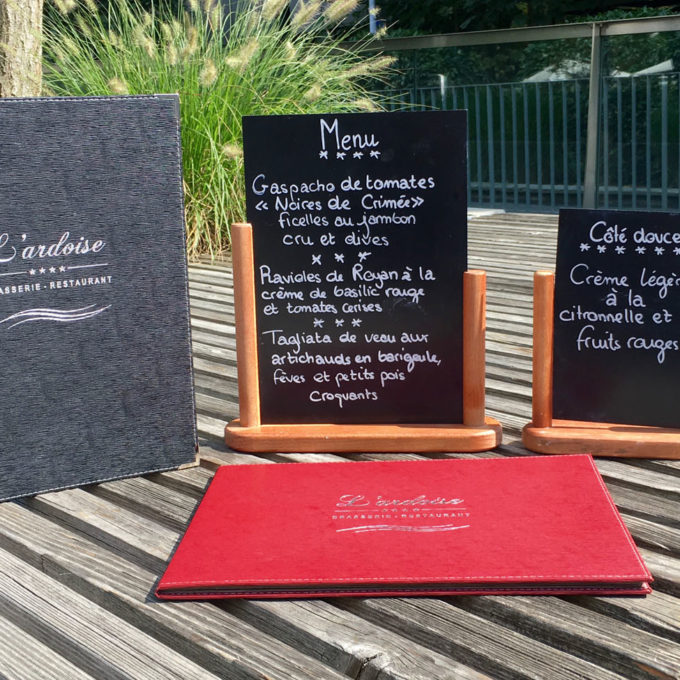 L'ardoise
BRASSERIE - RESTAURANT
Menu
Gaspacho de tomates
« Noires de Crimée »
ficelles au jambon
cru et olives
Ravioles de Royan à la
crème de basilic rouge
et tomates cerises
Tagliata de veau aux
artichauds en barigoule,
fèves et petits pois
Croquants
Côté douce
Crème légèr
à la
citronnelle et
fruits rouges
L'ardoise
BRASSERIE - RESTAURANT